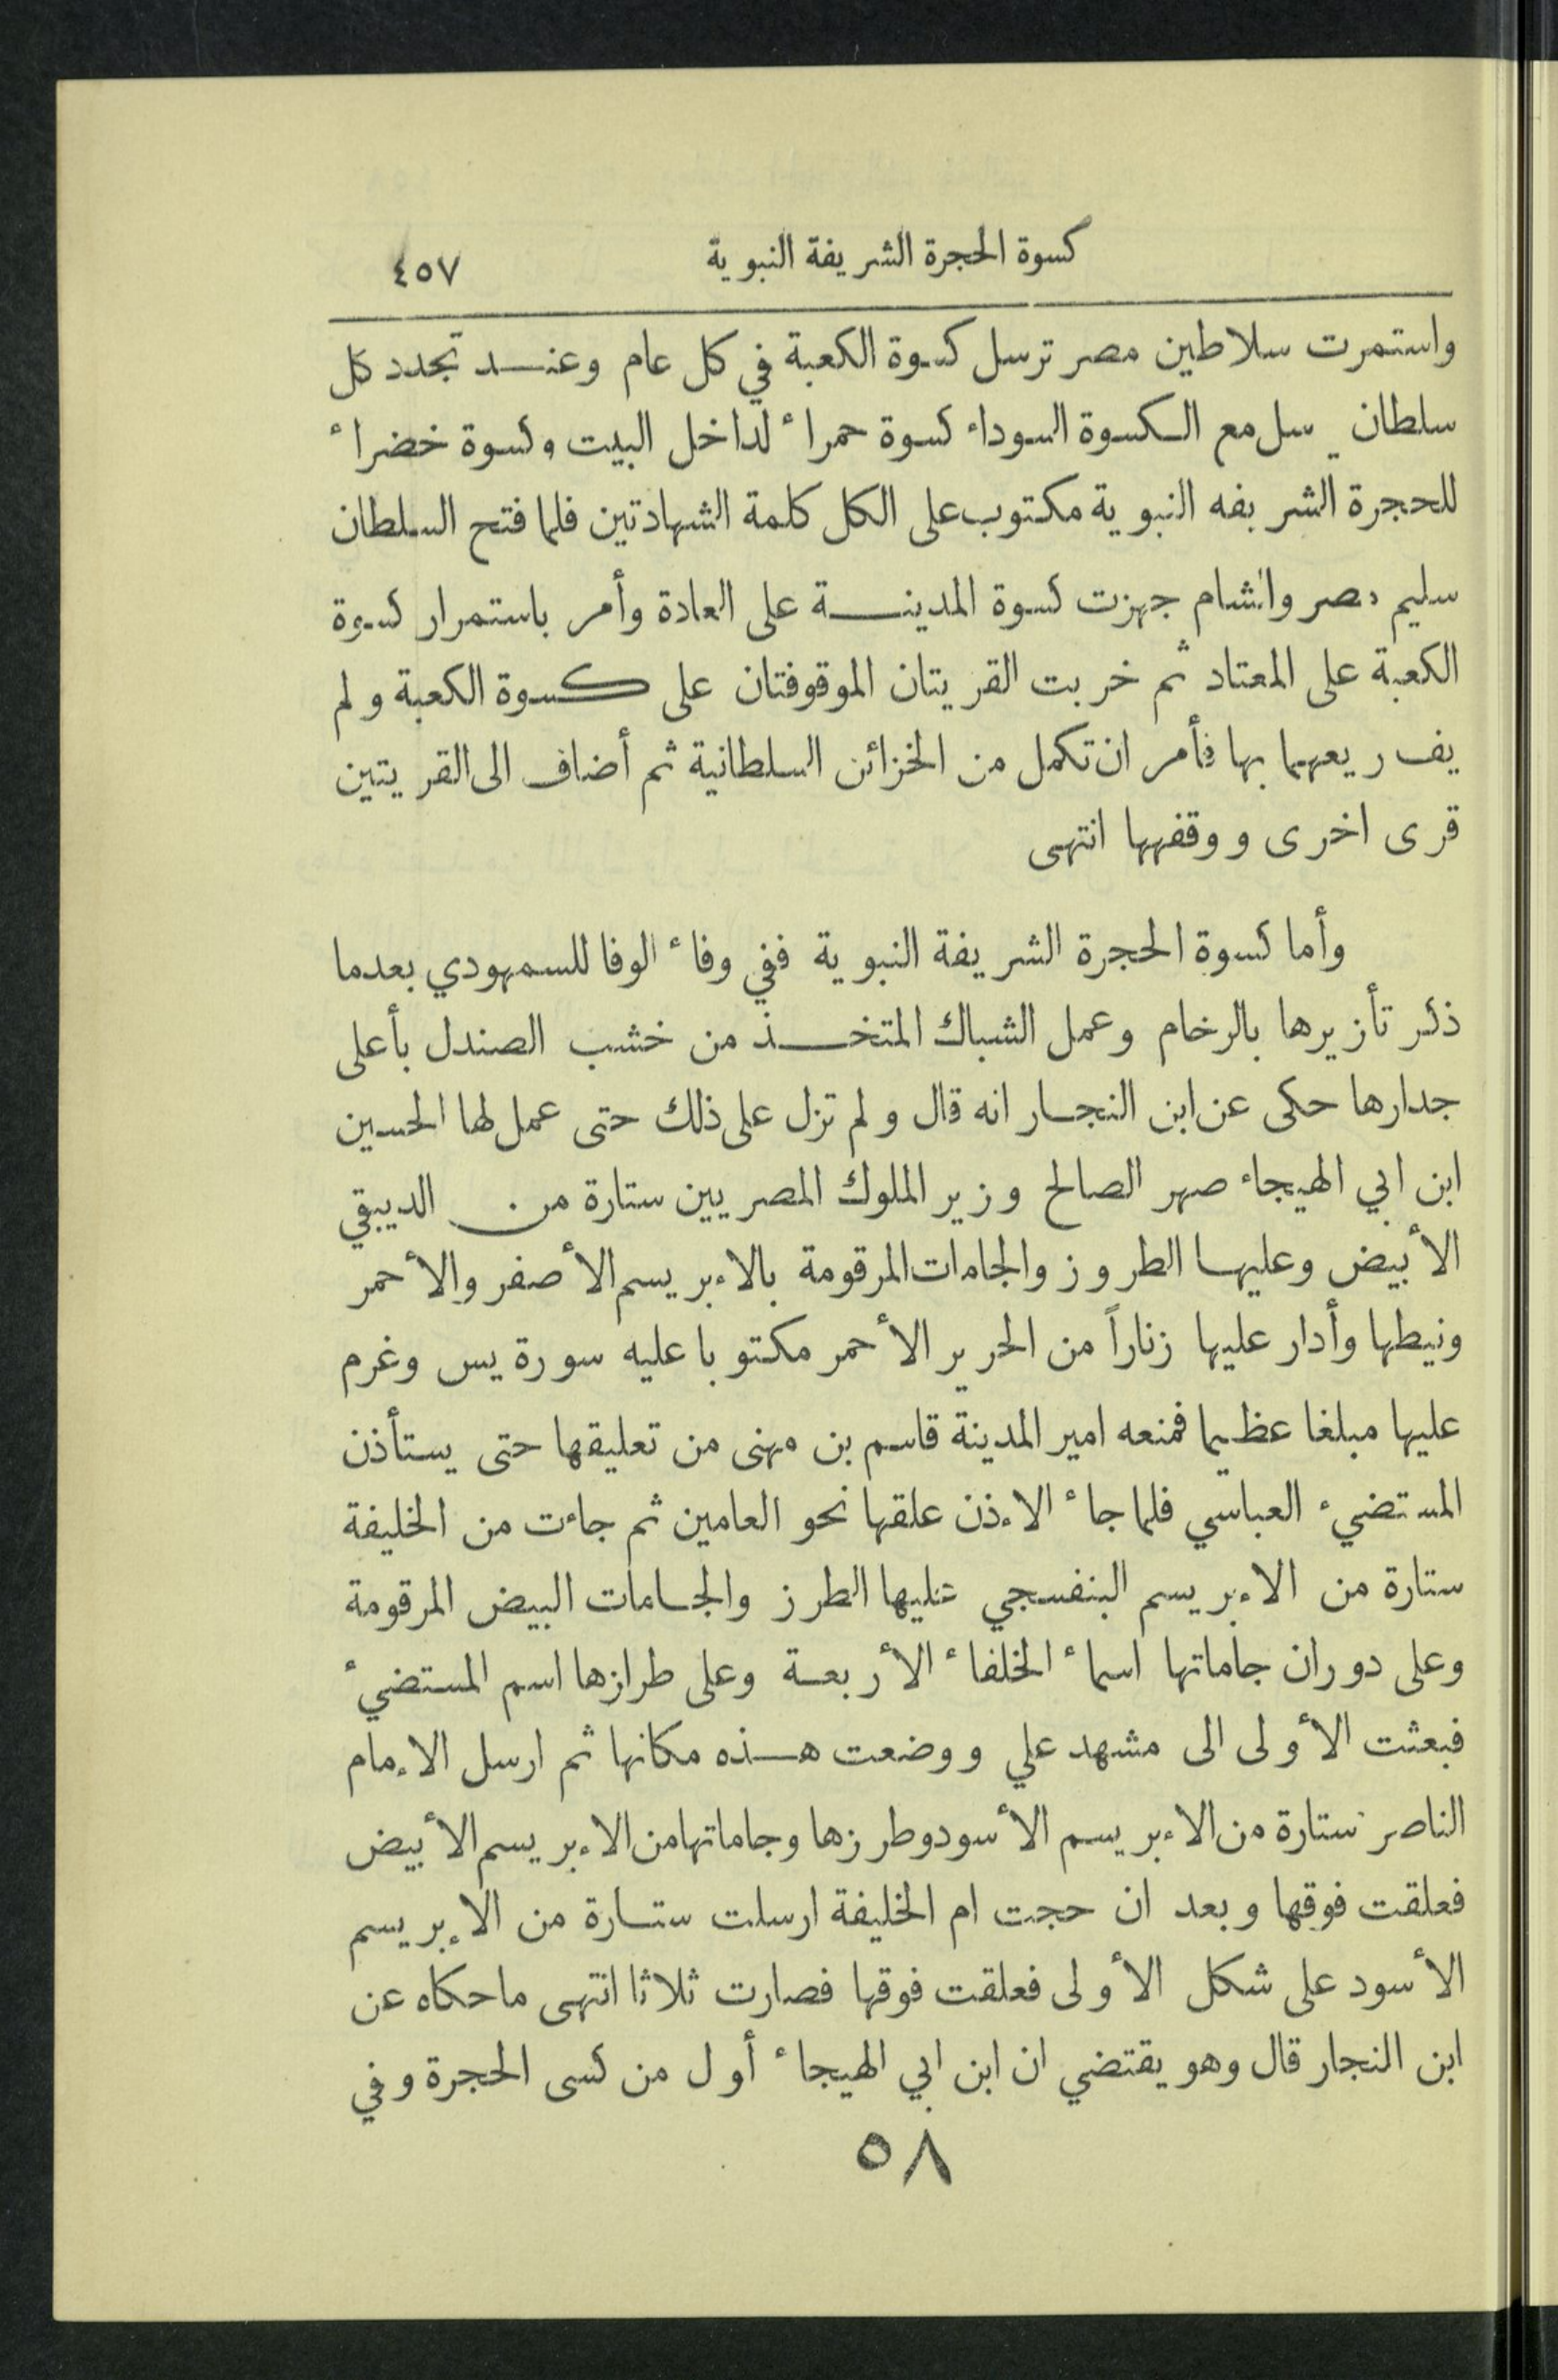 كسوة الحجرة الشريفة النبوية ٤٥٧
واستمرت سلاطين مصر ترسل كسوة الكعبة في كل عام وعند تجدد كل
سلطان يرسل مع الكسوة السوداء كسوة حمراء لداخل البيت وكسوة خضراء
للحجرة الشريفه النبوية مكتوب على الكل كلمة الشهادتين فلما فتح السلطان
سليم مصر والشام جهزت كسوة المدينة على العادة وأمر باستمرار كسوة
الكعبة على المعتاد ثم خربت القريتان الموقوفتان على كسوة الكعبة ولم
يف ريعهما بها فأمر ان تكمل من الخزائن السلطانية ثم أضاف الى القريتين
قرى اخرى ووقفهها انتهى
وأما كسوة الحجرة الشريفة النبوية ففي وفاء الوفا للسمهودي بعدما
ذكر تأزيرها بالرخام وعمل الشباك المتخذ من خشب الصندل بأعلى
جدارها حكى عن ابن النجار انه قال ولم تزل على ذلك حتى عمل لها الحسين
ابن ابي الهيجاء صهر الصالح وزير الملوك المصريين ستارة من الديبقي
الأبيض وعليها الطروز والجامات المرقومة بالإبريسم الأصفر والأحمر
ونيطها وأدار عليها زناراً من الحرير الأحمر مكتوبا عليه سورة يس وغرم
عليها مبلغا عظيما فمنعه امير المدينة قاسم بن مهنى من تعليقها حتى يستأذن
المستضيء العباسي فلما جاء الإذن علقها نحو العامين ثم جاءت من الخليفة
ستارة من الإبريسم البنفسجي عليها الطرز والجامات البيض المرقومة
وعلى دوران جاماتها اسماء الخلفاء الأربعة وعلى طرازها اسم المستضيء
فبعثت الأولى الى مشهد علي ووضعت هذه مكانها ثم ارسل الإمام
الناصر ستارة من الإبريسم الأسود وطرزها وجاماتها من الإبريسم الأبيض
فعلقت فوقها وبعد ان حجت ام الخليفة ارسلت ستارة من الإبريسم
الأسود على شكل الأولى فعلقت فوقها فصارت ثلاثا انتهى ماحكاه عن
ابن النجار قال وهو يقتضي ان ابن ابي الهيجاء أول من كسى الحجرة وفي
٥٨